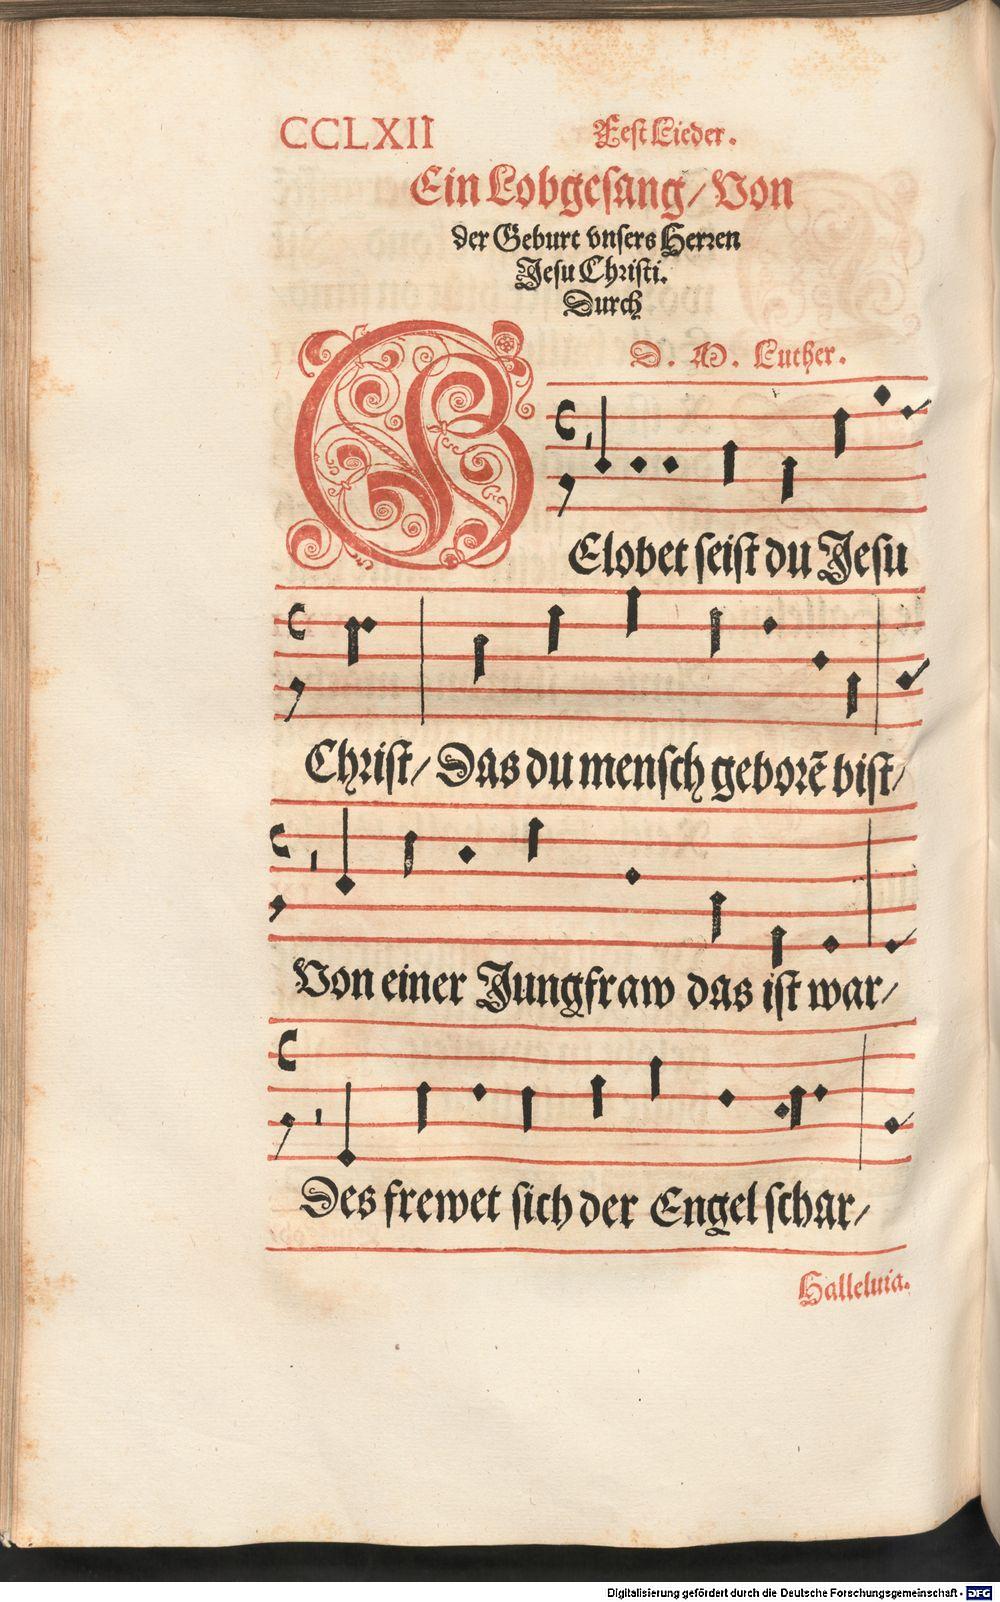 CCLXII Fest Lieder.
Ein Lobgesang/ Von
der Geburt vnsers Herren
Jesu Christi.
Durch
D. M. Luther.
GElobet seist du Jesu
Christ/ Das du mensch geborẽ bist/
Von einer Jungfraw das ist war/
Des frewet sich der Engel schar/
Halleluia.
Digitalisierung gefördert durch die Deutsche Forschungsgemeinschaft - DFG